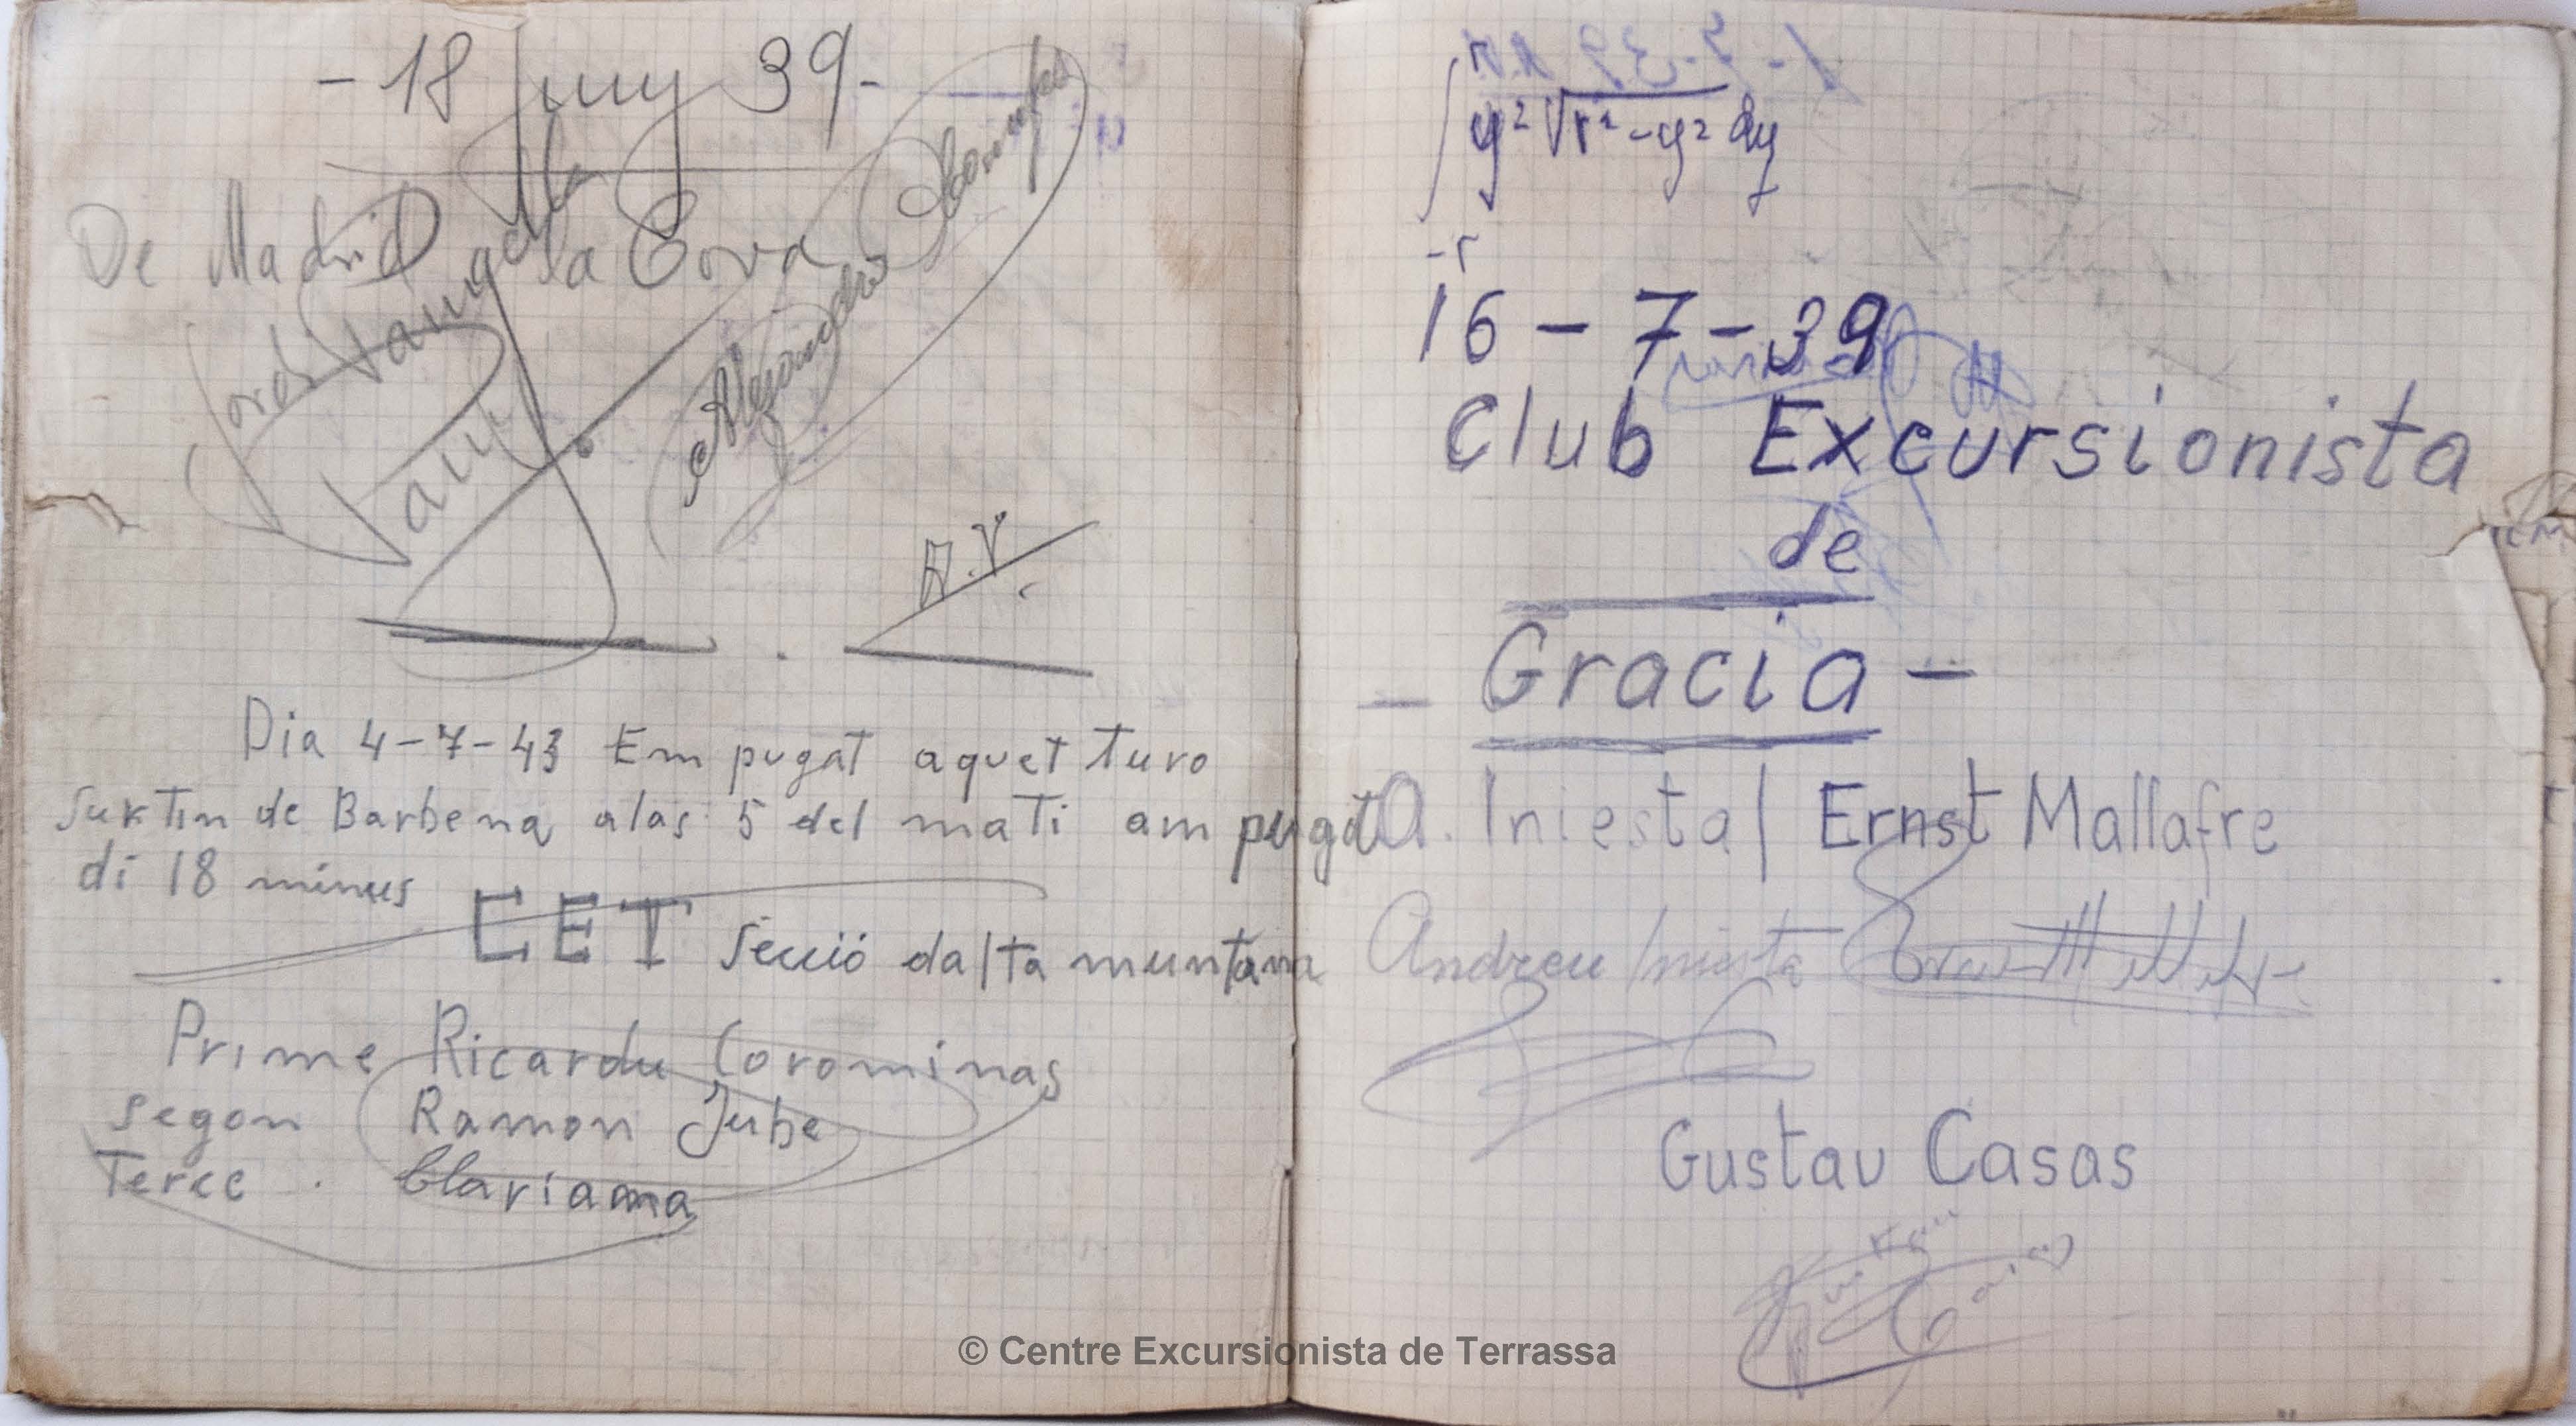 - 18 Juny 39 -
De Madrid a la Cova
Jordi
Alejandro
A. V.
Dia 4-7-43 Em pugat aquet turo
surtin de Barbena a las 5 del mati am pugat
di 18 minus
CET Secció dalta muntana
Prime Ricardu Corominas
segon Ramon Jube
Terce . Clariana
r
∫ y² √r² - y² dy
-r
16 - 7 - 39
Club Excursionista
de
- Gracia -
A. Iniesta | Ernst Mallafre
Andreu Iniesta
Gustau Casas
Gustau Casas
© Centre Excursionista de Terrassa